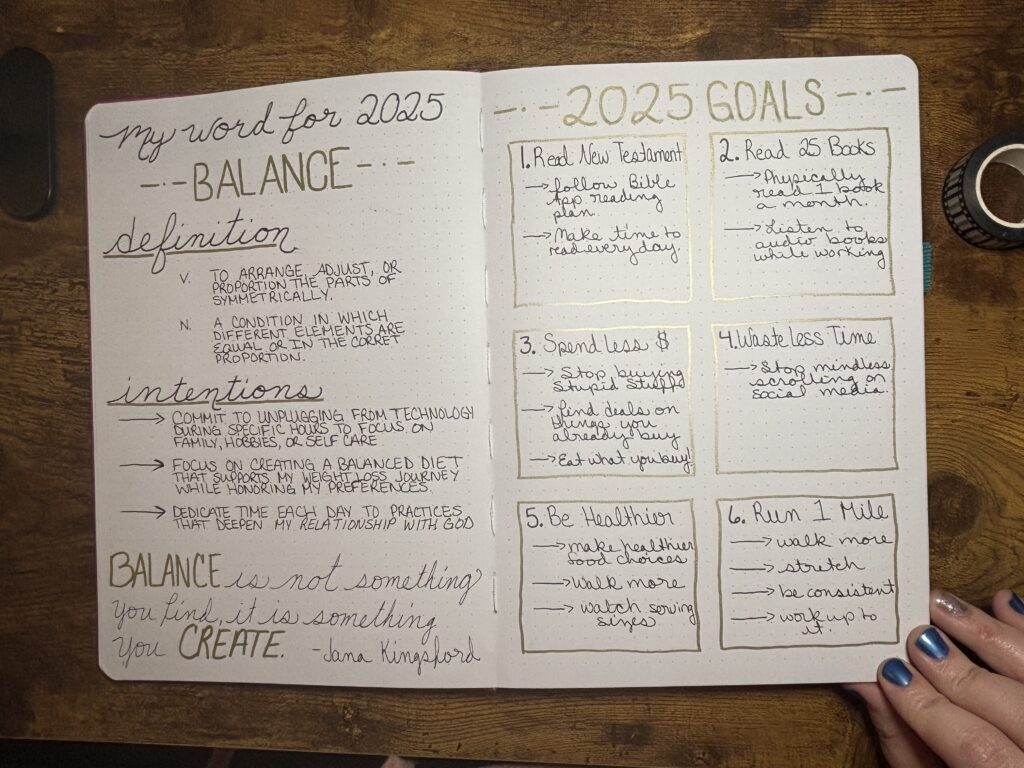 My word for 2025
BALANCE
definition
V. TO ARRANGE, ADJUST, OR
PROPORTION THE PARTS OF
SYMMETRICALLY.
N. A CONDITION IN WHICH
DIFFERENT ELEMENTS ARE
EQUAL OR IN THE CORRET
PROPORTION.
intentions
→ COMMIT TO UNPLUGGING FROM TECHNOLOGY
DURING SPECIFIC HOURS TO FOCUS ON
FAMILY, HOBBIES, OR SELF CARE
→ FOCUS ON CREATING A BALANCED DIET
THAT SUPPORTS MY WEIGHT LOSS JOURNEY
WHILE HONORING MY PREFERENCES.
→ DEDICATE TIME EACH DAY TO PRACTICES
THAT DEEPEN MY RELATIONSHIP WITH GOD
BALANCE is not something
you find, it is something
you CREATE. -Jana Kingsford
2025 GOALS
1. Read New Testament
→ follow Bible
App reading
plan.
→ Make time to
read every day.
2. Read 25 Books
→ Physically
read 1 book
a month.
→ Listen to
audio books
while working
3. Spend less $
→ Stop buying
Stupid Stuff
→ find deals on
things you
already buy
→ Eat what you buy!
4. Waste less Time
→ Stop mindless
scrolling on
social media.
5. Be Healthier
→ make healthier
food choices
→ walk more
→ watch serving
sizes
6. Run 1 Mile
→ walk more
→ stretch
→ be consistent
→ work up to
it.